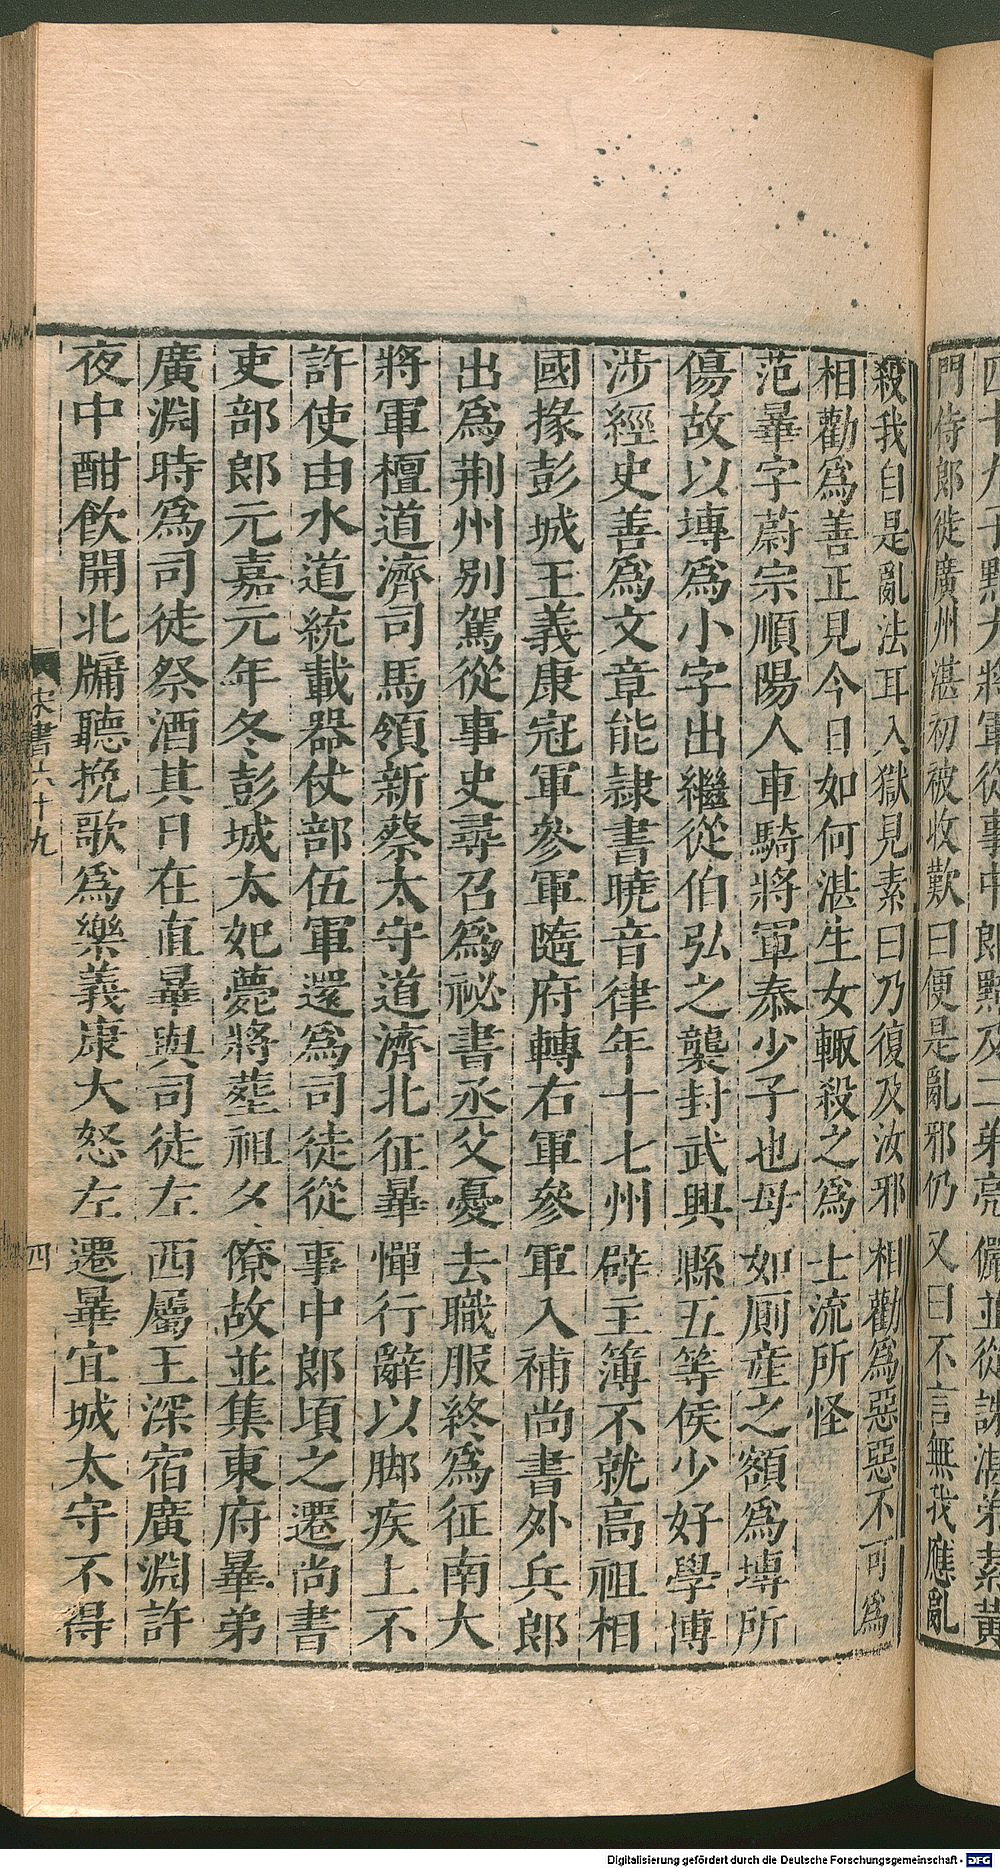 門侍郎徙廣州湛初被收歎曰便是亂邪仍又曰不言無我應亂
殺我自是亂法耳入獄見素曰乃復及汝邪相勸爲惡惡不可爲
相勸爲善正見今日如何湛生女輒殺之爲士流所怪
范曄字蔚宗順陽人車騎將軍泰少子也母如厠産之額爲塼所
傷故以塼爲小字出繼從伯弘之襲封武興縣五等侯少好學博
涉經史善爲文章能隷書曉音律年十七州辟主簿不就高祖相
國掾彭城王義康冠軍參軍隨府轉右軍參軍入補尚書外兵郎
出爲荆州別駕從事史尋召爲祕書丞父憂去職服終爲征南大
將軍檀道濟司馬領新蔡太守道濟北征曄憚行辭以脚疾上不
許使由水道統載器仗部伍軍還爲司徒從事中郎頃之遷尚書
吏部郎元嘉元年冬彭城太妃薨將葬祖夕僚故並集東府曄弟
廣淵時爲司徒祭酒其日在直曄與司徒左西屬王深宿廣淵許
夜中酣飲開北牖聽挽歌爲樂義康大怒左遷曄宜城太守不得
宋書六十九 四
Digitalisierung gefördert durch die Deutsche Forschungsgemeinschaft - DFG